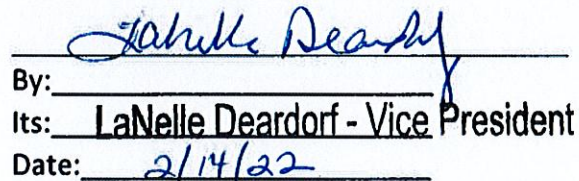 LaNelle Deardorf
By:
Its: LaNelle Deardorf - Vice President
Date: 2/14/22